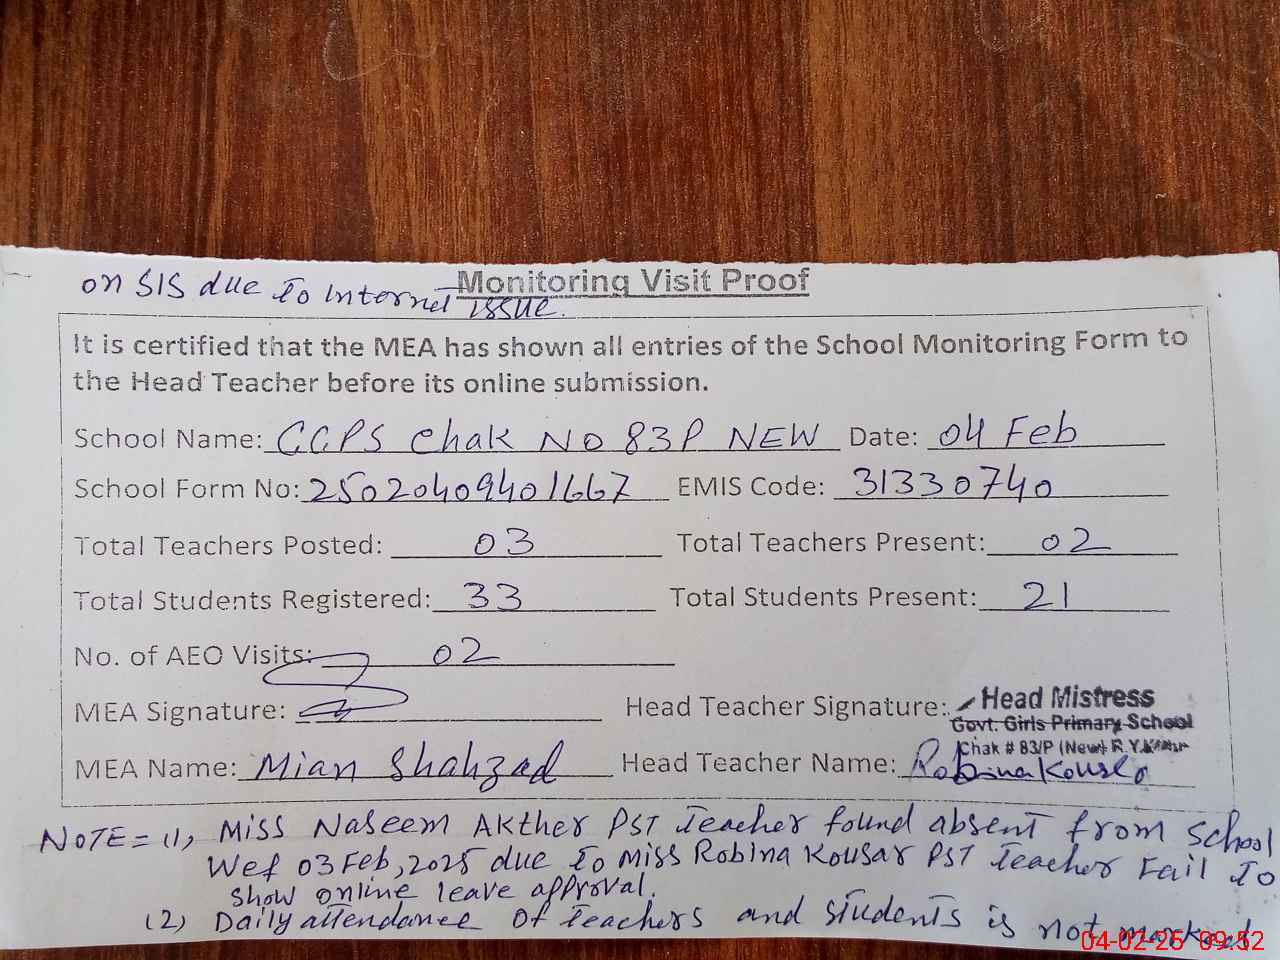 on SIS due to Internet issue.
Monitoring Visit Proof
It is certified that the MEA has shown all entries of the School Monitoring Form to
the Head Teacher before its online submission.
School Name: GGPS Chak NO 83P NEW Date: 04 Feb
School Form No: 25020409401667 EMIS Code: 31330740
Total Teachers Posted: 03 Total Teachers Present: 02
Total Students Registered: 33 Total Students Present: 21
No. of AEO Visits: 02
MEA Signature: Head Teacher Signature: Head Mistress
Govt. Girls Primary School
Chak # 83/P (New) R.Y.Khan
MEA Name: Mian Shahzad Head Teacher Name: Robina Kousar
NOTE = (1), Miss Naseem Akther PST Teacher found absent from school
Wef 03 Feb, 2025 due to Miss Robina Kousar PST Teacher Fail to
show online leave approval.
(2) Daily attendance of teachers and students is not marked
04-02-25 09:52